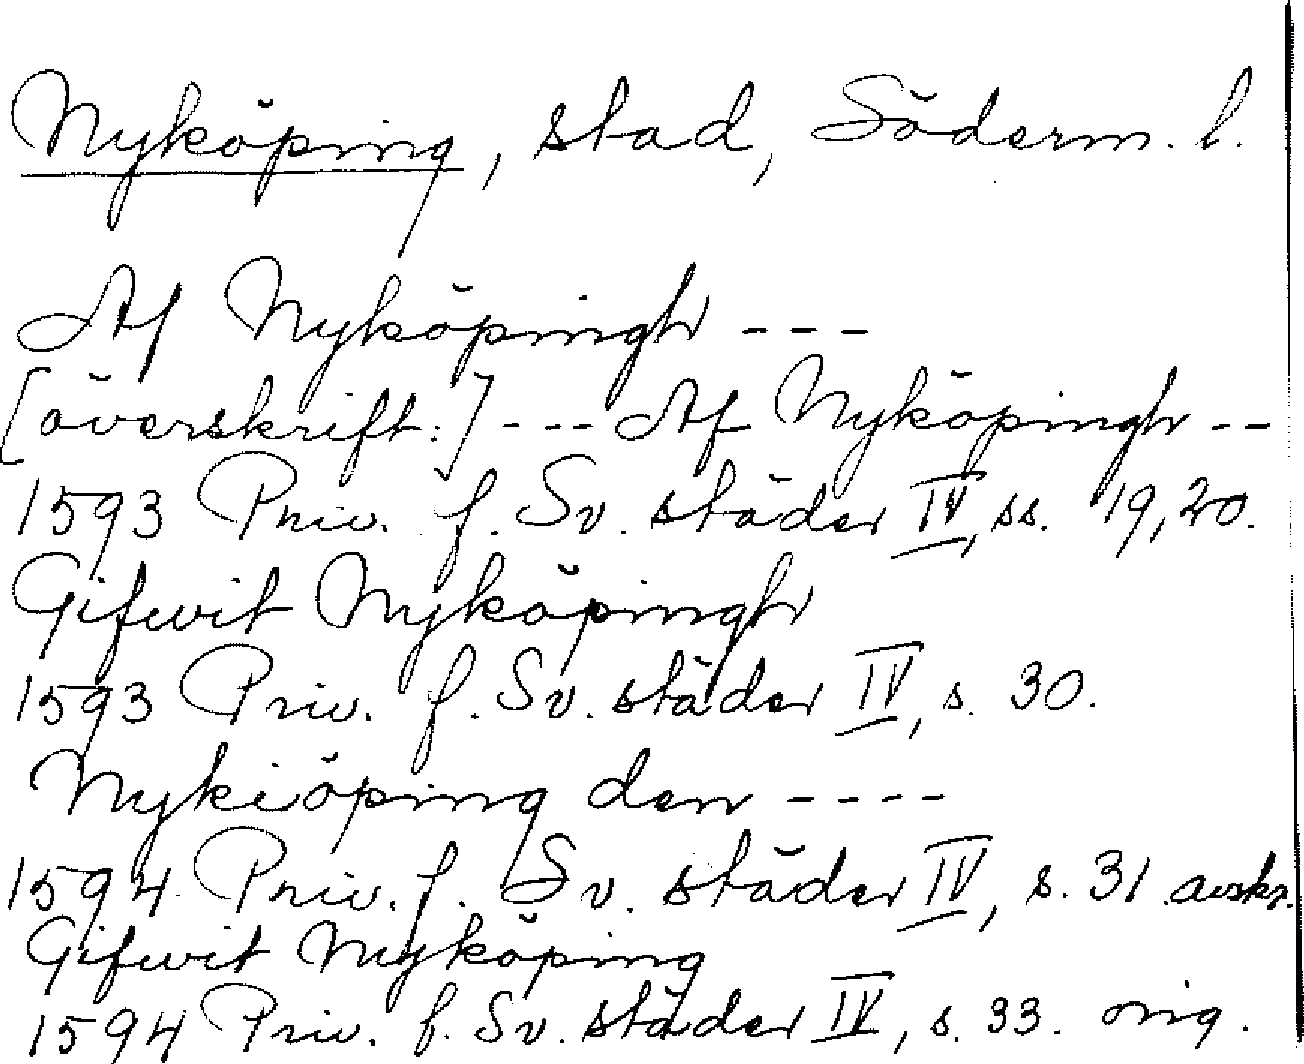 Nyköping, stad, Söderm. l.
Af Nyköpingh ---
[överskrift:] --- Af Nyköpingh --
1593 Priv. f. Sv. städer IV, ss. 19, 20.
Gifwit Nyköpingh
1593 Priv. f. Sv. städer IV, s. 30.
Nykiöping den ----
1594 Priv. f. Sv. städer IV, s. 31 avskr.
Gifwit Nyköping
1594 Priv. f. Sv. städer IV, s. 33. orig.